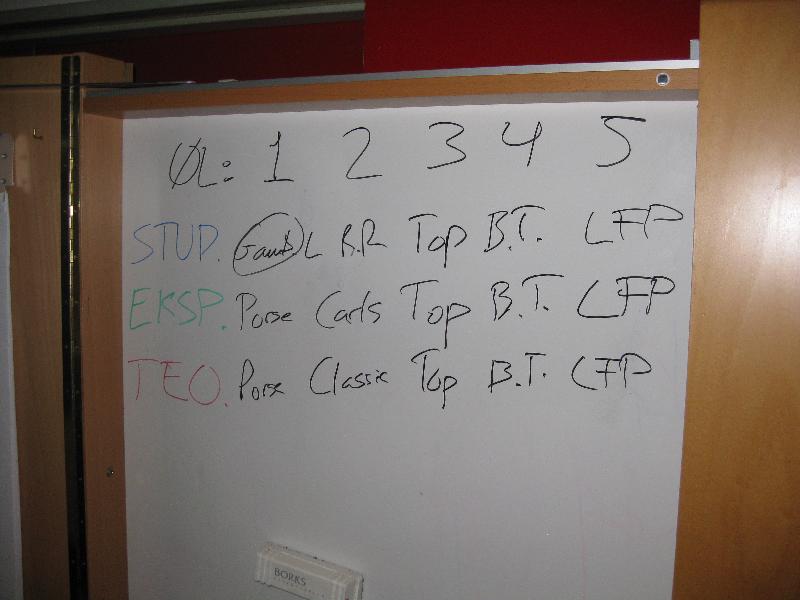 ØL: 1 2 3 4 5
STUD. L B.R Top B.T. LFP
EKSP. Porse Carls Top B.T. LFP
TEO. Porse Classic Top B.T. LFP
BORKS